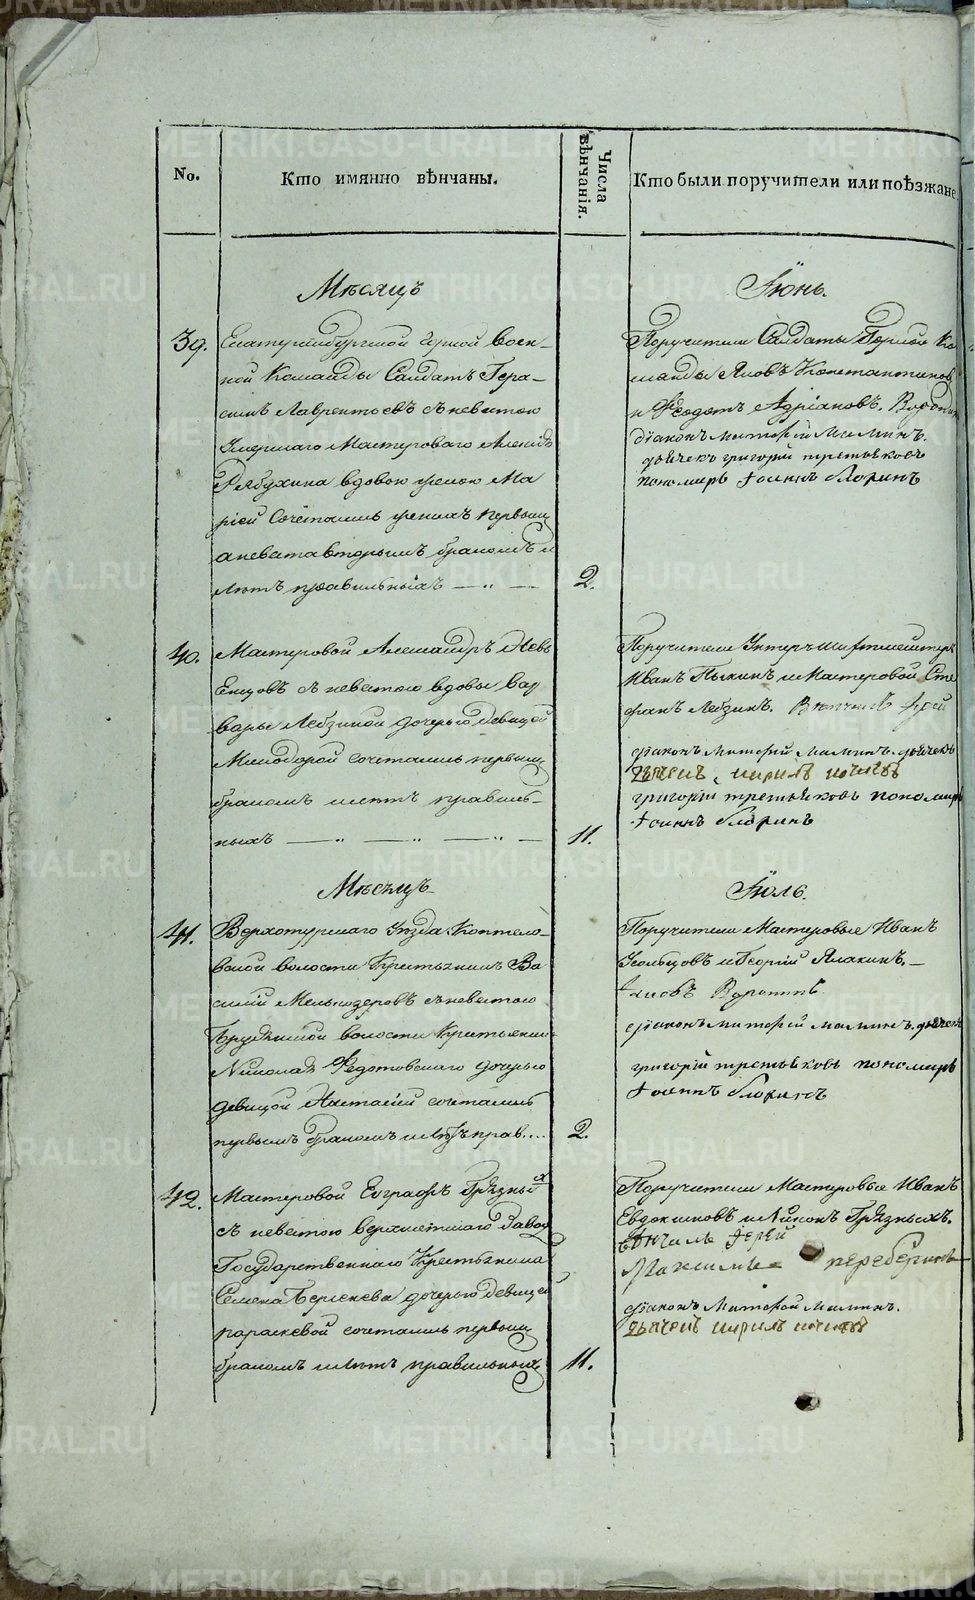 No.
Кто имянно вѣнчаны.
Числа вѣнчанія.
Кто были поручители или поѣзжане
Мѣсяцъ
Іюнь.
39.
Екатеринбургской горной воен-
ной Команды Салдатъ Гера-
симъ Лаврентьевъ с невестою
умершаго мастероваго
Рябухина вдовою женою Ма
ріей сочетались женихъ первымъ
а невеста вторымъ бракомъ и
лѣтъ правильныхъ
2.
Поручители Салдаты Горной Ко
манды Яковъ Константиновъ
и Феодотъ Адріановъ.
діаконъ митрофій маминъ.
дьячекъ григорій третьяковъ
пономарь Іоаннъ Флоринъ
40.
Мастеровой Александръ
с невестою вдовы Вар
вары Лебзиной дочерью девицей
Минодорой сочетались первымъ
бракомъ и лѣтъ правиль-
ныхъ
11.
Поручители Унтеръ-шихтмейстеръ
Иванъ и Мастеровой Сте
фанъ Лебзинъ. Вѣнчалъ Іерей
діаконъ митрофій маминъ. дьячекъ
григорій третьяковъ пономарь
Іоаннъ Флоринъ
Мѣсяцъ
Іюль.
41.
Верхотурскаго Уѣзда Коптело-
вской волости Крестьянинъ Ва
силій Мельнозеровъ с невестою
волости Крестьянина
Николая Федотовскаго дочерью
девицой Настасіей сочетались
первымъ бракомъ и лѣтъ прав...
2.
Поручители Мастеровые Иванъ
Усольцовъ и Георгій
діаконъ митрофій маминъ. дьячекъ
григорій третьяковъ пономарь
Іоаннъ Флоринъ
42.
Мастеровой Евграфъ Грязныхъ
с невестою верхисетскаго Завода
Государственнаго Крестьянина
Семена дочерью девицей
параскевой сочетались первымъ
бракомъ и лѣтъ правильныхъ
11.
Поручители Мастеровые Иванъ
Евдокимовъ и Никонъ Грязныхъ.
вѣнчалъ Іерей
Максимъ
діаконъ Митрофій Маминъ.
METRIKI.GASO-URAL.RU